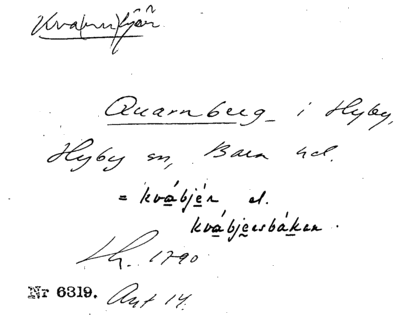 Kva(rn)bjär
Quarnberg i Hyby,
Hyby sn, Bara hd.
= kvábjér el.
kvábjersbáken.
Lh. 1790
Nr 6319. Ant 14.